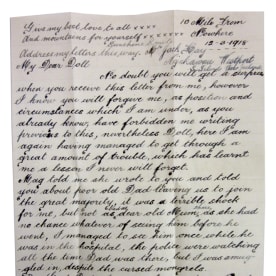 Give my best love to all xxxx
And mountains for yourself xxxx
10 Mile From
Nowhere
Address my letters this way.
13-6-1918
My Dear Doll
No doubt you will get a surprise
when you receive this letter from me, however
I know you will forgive me, as position and
circumstances which I am under, as you
already know, have forbidden me writing
previous to this, nevertheless Doll, here I am
again having managed to get through a
great amount of trouble, which has learnt
me a lesson I never will forget.
Mag told me she wrote to you and told
you about poor old Dad leaving us to join
the great majority, it was a terrible shock
for me, but not as dear old Mum, as she had
no chance whatever of seeing him before he
went, I managed to see him once while he
was in the hospital, the police were watching
all the time Dad was there, but I was smug-
gled in, despite the cursed mongrels